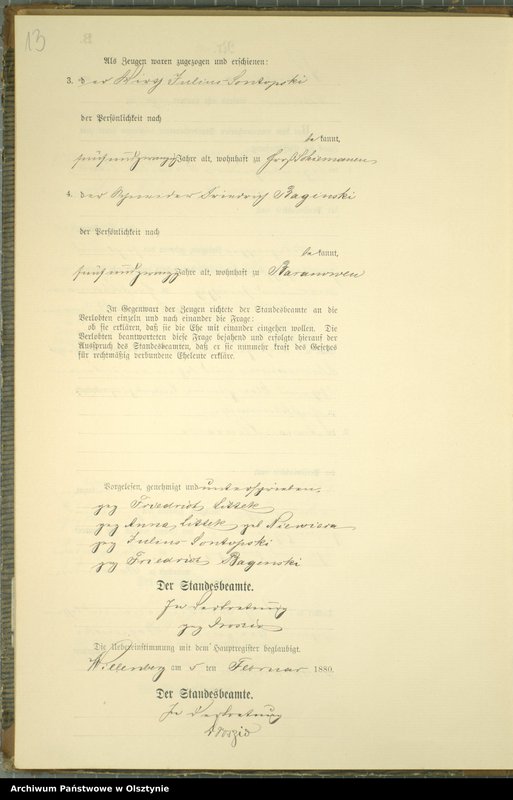 13
Als Zeugen waren zugezogen und erschienen:
3. der Wirth Julius Sontopski
der Persönlichkeit nach
bekannt,
fünfundzwanzig Jahre alt, wohnhaft zu Groß Schiemanen
4. der Schneider Friedrich Bagenski
der Persönlichkeit nach
bekannt,
fünfundzwanzig Jahre alt, wohnhaft zu Baranowen
In Gegenwart der Zeugen richtete der Standesbeamte an die
Verlobten einzeln und nach einander die Frage:
ob sie erklären, daß sie die Ehe mit einander eingehen wollen. Die
Verlobten beantworteten diese Frage bejahend und erfolgte hierauf der
Ausspruch des Standesbeamten, daß er sie nunmehr kraft des Gesetzes
für rechtmäßig verbundene Eheleute erkläre.
Vorgelesen, genehmigt und unterschrieben
gez Friedrich Littek
gez Anna Littek geb Niewiera
gez Julius Sontopski
gez Friedrich Bagenski
Der Standesbeamte.
In Vertretung
gez
Die Uebereinstimmung mit dem Hauptregister beglaubigt.
Willenberg am 5 ten Februar 1880.
Der Standesbeamte.
In Vertretung
Archiwum Państwowe w Olsztynie